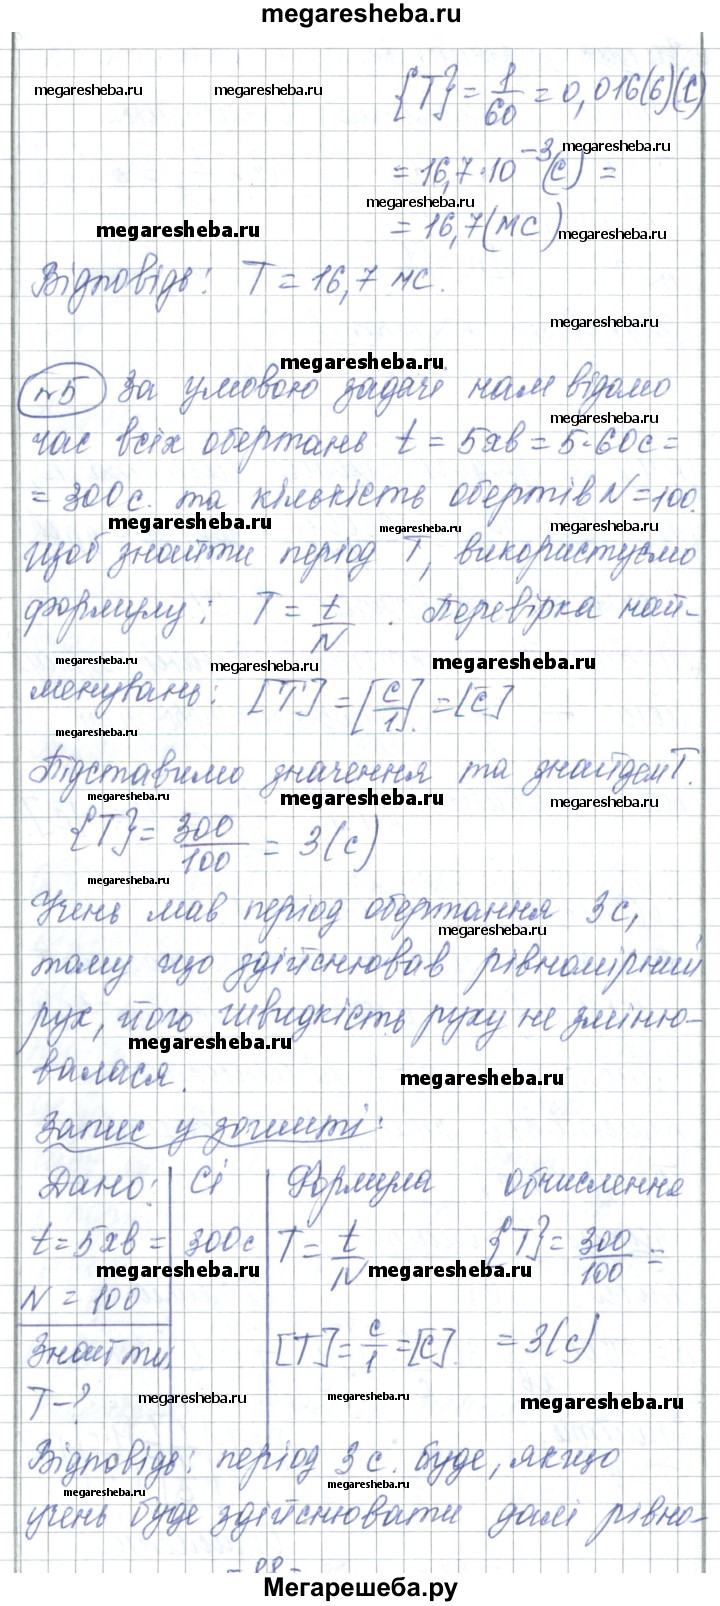 megaresheba.ru
{T} = 1/60 = 0,016(6)(с)
megaresheba.ru megaresheba.ru megaresheba.ru
= 16,7·10⁻³(с) =
megaresheba.ru
= 16,7(мс)
megaresheba.ru megaresheba.ru
Відповідь: T = 16,7 мс.
megaresheba.ru
megaresheba.ru
№5 За умовою задачі нам відомо
megaresheba.ru
час всіх обертань t = 5хв = 5·60с =
= 300с. та кількість обертів N = 100.
megaresheba.ru megaresheba.ru megaresheba.ru
Щоб знайти період T, використуємо
формулу: T = t/N . Перевірка най-
megaresheba.ru megaresheba.ru megaresheba.ru
менувань: [T] = [с/1] = [с]
megaresheba.ru
Підставимо значення та знайдем T.
megaresheba.ru megaresheba.ru megaresheba.ru
{T} = 300/100 = 3(с)
megaresheba.ru
Учень мав період обертання 3с,
megaresheba.ru
тому що здійснював рівномірний
рух, його швидкість руху не зміню-
megaresheba.ru
валася.
megaresheba.ru
Запис у зошиті:
Дано: Сі Формула Обчислення
t = 5хв = 300с T = t/N {T} = 300/100 =
megaresheba.ru megaresheba.ru
N = 100
Знайти [T] = с/1 = [с]. = 3(с)
T - ?
megaresheba.ru megaresheba.ru megaresheba.ru
Відповідь: період 3с. буде, якщо
megaresheba.ru megaresheba.ru
учень буде здійснювати далі рівно-
megaresheba.ru megaresheba.ru
- 88 -
Мегарешеба.ру